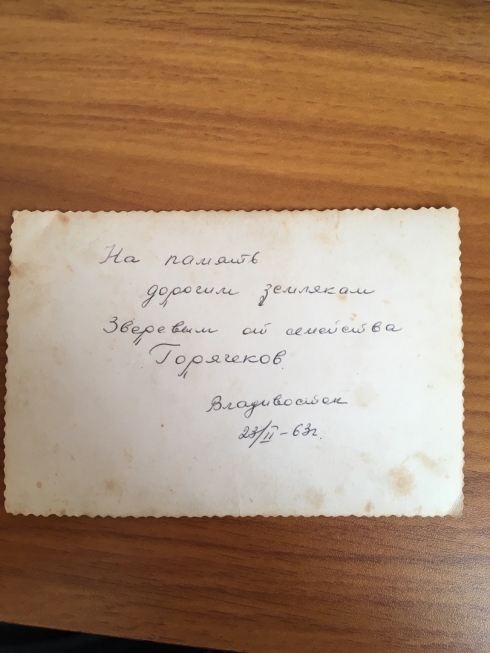 На память
дорогим землякам
Зверевым от семейства
Горячеков.
Владивосток
23/II-63г.